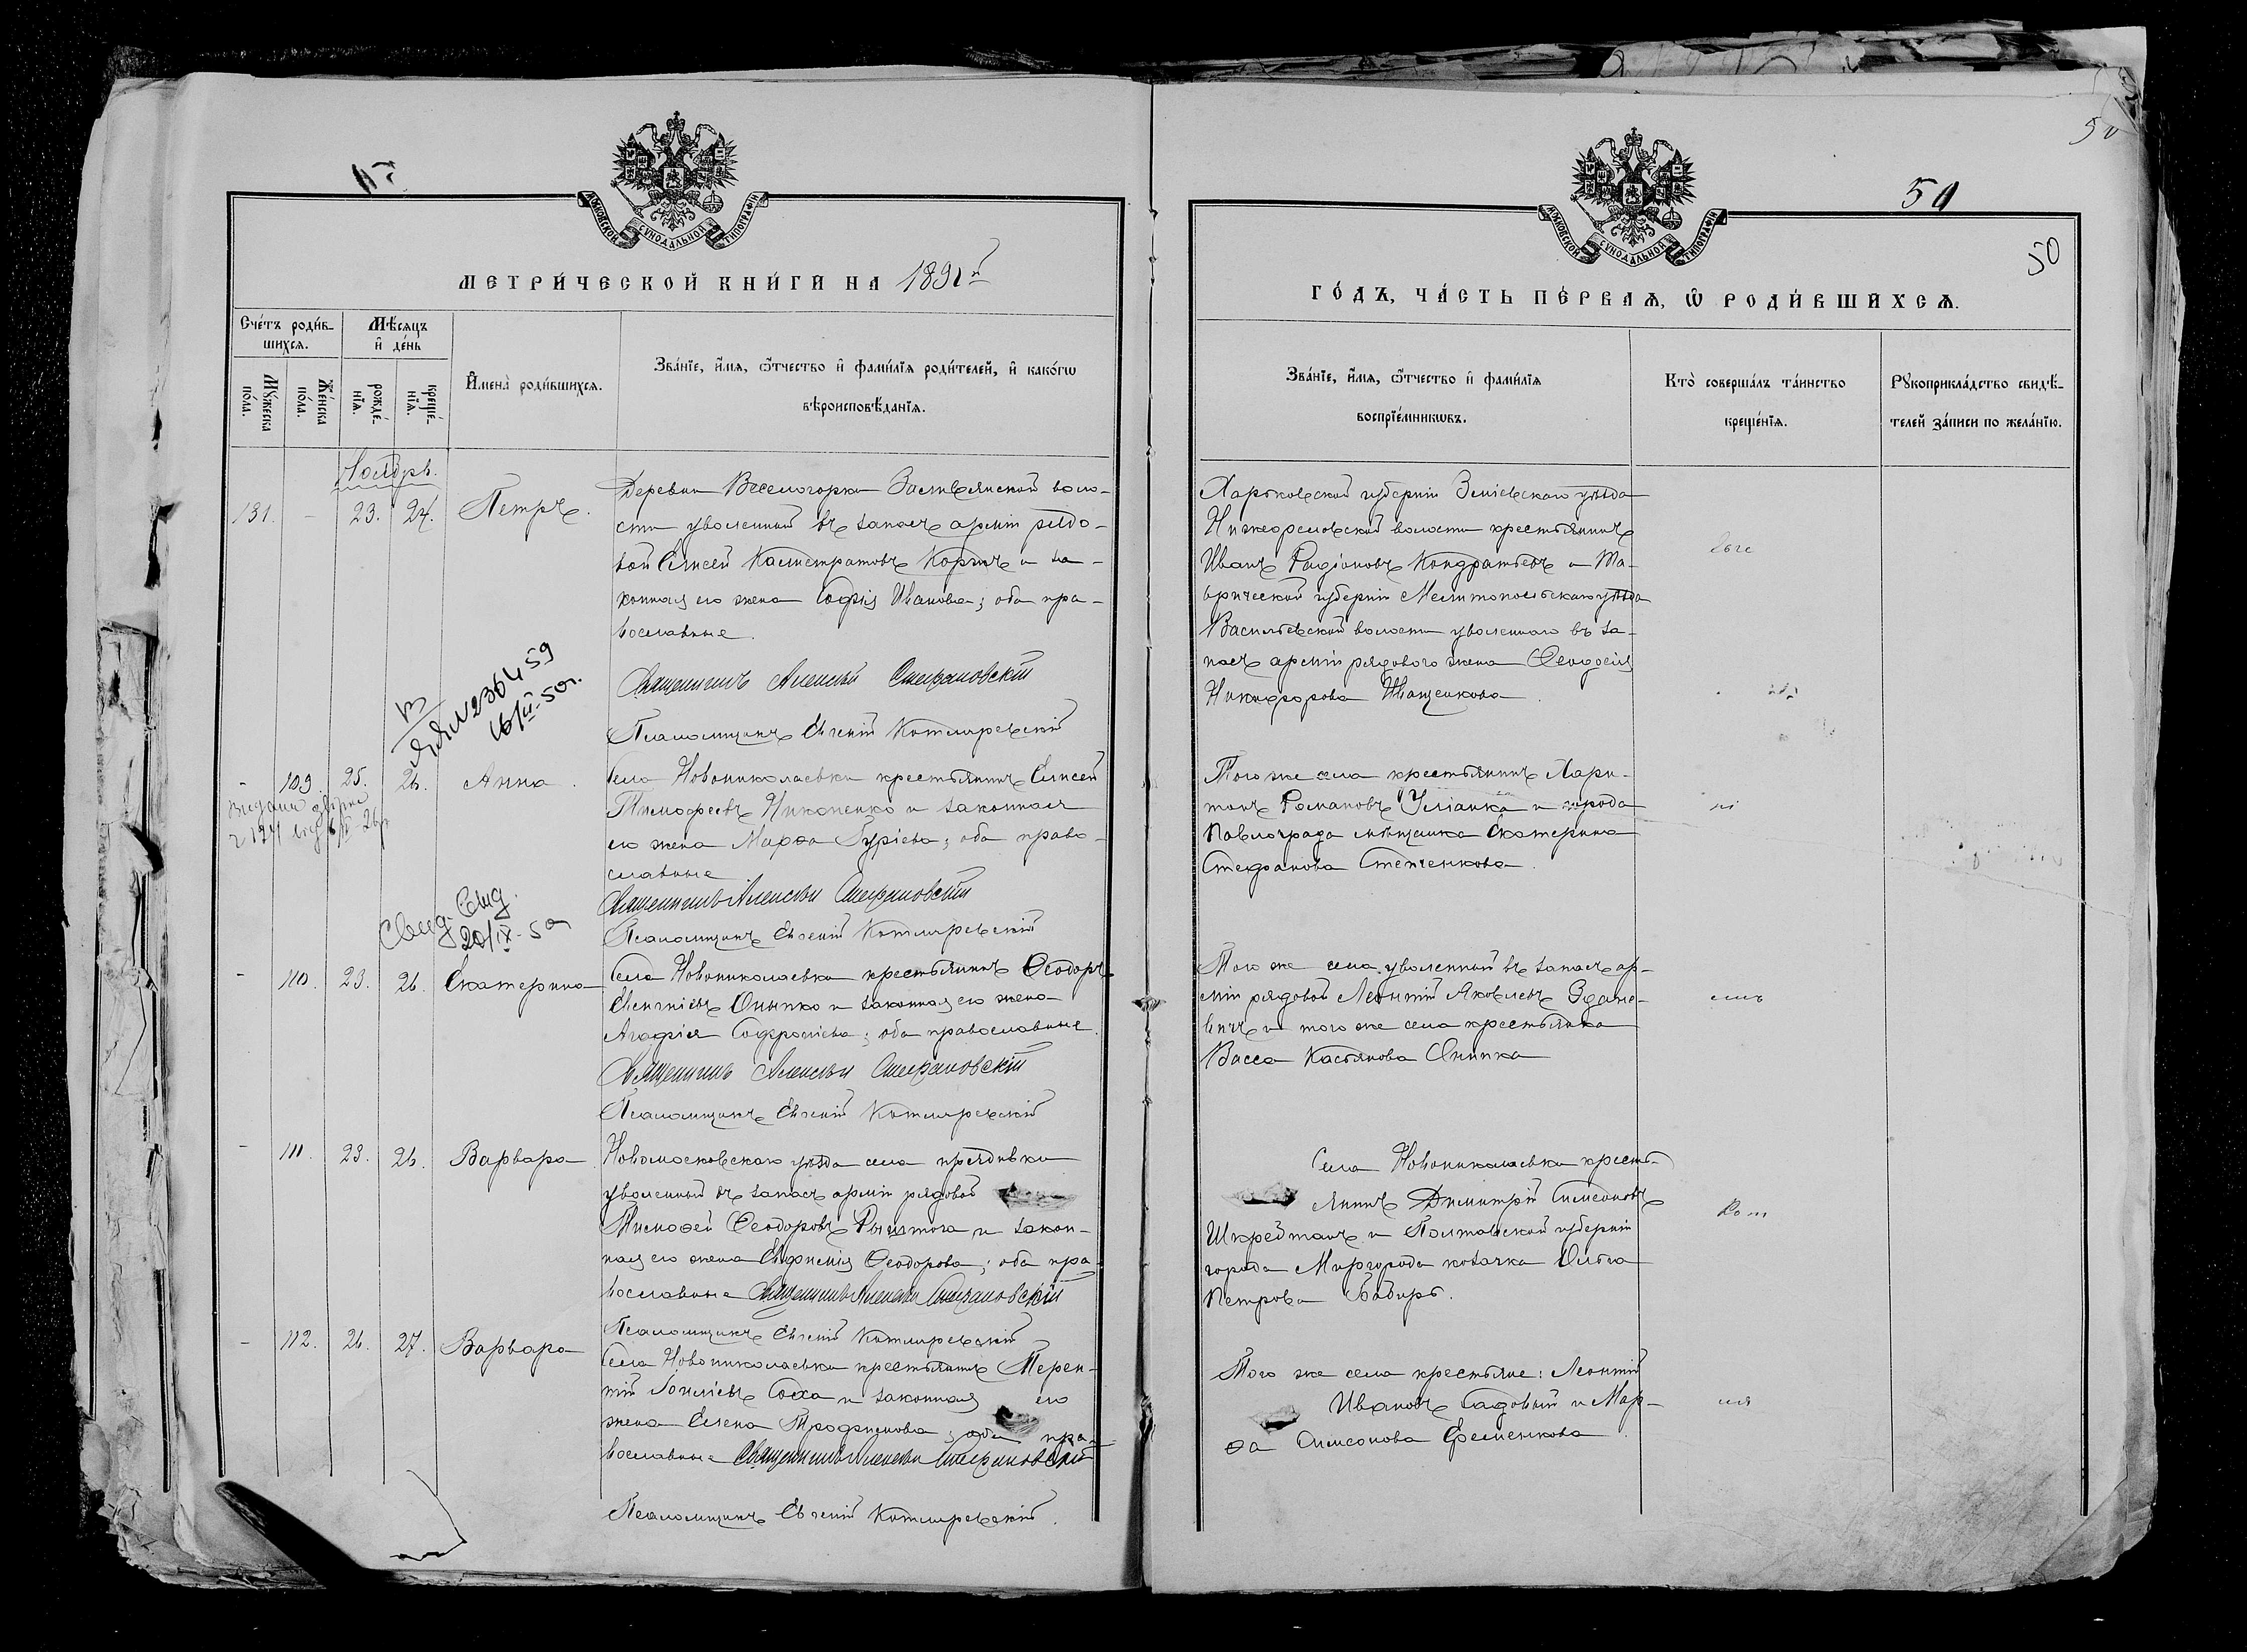 МОСКОВСКОЙ СУНОДАЛЬНОЙ ТИПОГРАФІИ
МЕТРИ́ЧЕСКОЙ КНИ́ГИ НА 1891й
Сче́тъ роди́в-
шихсѧ.
Мѣ́сѧцъ
и҆ де́нь
Мꙋ́жеска
по́ла.
Же́нска
по́ла.
рожде́-
нїѧ.
креще́-
нїѧ.
И҆мена̀ роди́вшихсѧ.
Зва́нїе, и҆́мѧ, ѻ҆́тчество и҆ фами́лїѧ роди́телей, и҆ како́гѡ
вѣроисповѣ́данїѧ.
Ноябрь.
131. - 23. 24. Петръ.
Деревни Веселогорки воло-
сти уволенный въ запасъ арміи рядо-
вой Елисей Калистратовъ Коржъ и за-
конная его жена Софія Иванова; оба пра-
вославные.
Священникъ Алексѣй Стефановскій
Псаломщикъ Евгеній Котляревскій
16/II-50г.
- 109. 25. 26. Анна.
Села Новониколаевки крестьянинъ Елисей
Тимофеевъ Никоненко и законная
его жена Марѳа Гуріева; оба право-
славные
Священникъ Алексѣй Стефановскій
Псаломщикъ Евгеній Котляревскій
Свид.
20/IX-50
- 110. 23. 26. Екатерина
Села Новониколаевки крестьянинъ Ѳеодоръ
Онипко и законная его жена
Агафія Софроніева; оба православные.
Священникъ Алексѣй Стефановскій
Псаломщикъ Евгеній Котляревскій
- 111. 23. 26. Варвара
Новомосковскаго уѣзда села
уволенный въ запасъ арміи рядовой
Тимоѳей Ѳеодоровъ и закон-
ная его жена Евфимія Ѳеодорова; оба пра-
вославные Священникъ Алексѣй Стефановскій
Псаломщикъ Евгеній Котляревскій
- 112. 26. 27. Варвара
Села Новониколаевки крестьянинъ Терен-
тій Соха и законная его
жена Елена Трофимова; оба пра-
вославные Священникъ Алексѣй Стефановскій
Псаломщикъ Евгеній Котляревскій.
50
50
МОСКОВСКОЙ СУНОДАЛЬНОЙ ТИПОГРАФІИ
ГО́ДЪ, ЧА́СТЬ ПЕ́РВАѦ, Ѡ҆ РОДИ́ВШИХСѦ.
Зва́нїе, и҆́мѧ, ѻ҆́тчество и҆ фами́лїѧ
воспрїе́мникѡвъ.
Кто̀ соверша́лъ та́инство
креще́нїѧ.
Рꙋкоприкла́дство свидѣ́-
телей за́писи по жела́нїю.
Харьковской губерніи Зміевскаго уѣзда
Нижеорельской волости крестьянинъ
Иванъ Родіоновъ Кондратьевъ и Та-
врической губерніи Мелитопольскаго уѣзда
Васильевской волости уволеннаго въ за-
пасъ арміи рядового жена Ѳеодосія
Никифорова Иващенкова.
Того же села крестьянинъ Хари-
тонъ Романовъ и города
Павлограда мѣщанка Екатерина
Стефанова Степченкова.
Того же села уволенный въ запасъ ар-
міи рядовой Леонтій Яковлевъ Здане-
вичъ и того же села крестьянка
Васса Касьянова Онипка
Села Новониколаевки кресть-
янинъ Димитрій Симеоновъ
и Полтавской губерніи
города Миргорода козачка Ольга
Петрова
Того же села крестьяне: Леонтій
Ивановъ Садовый и Мар-
ѳа Симеонова Еременкова.